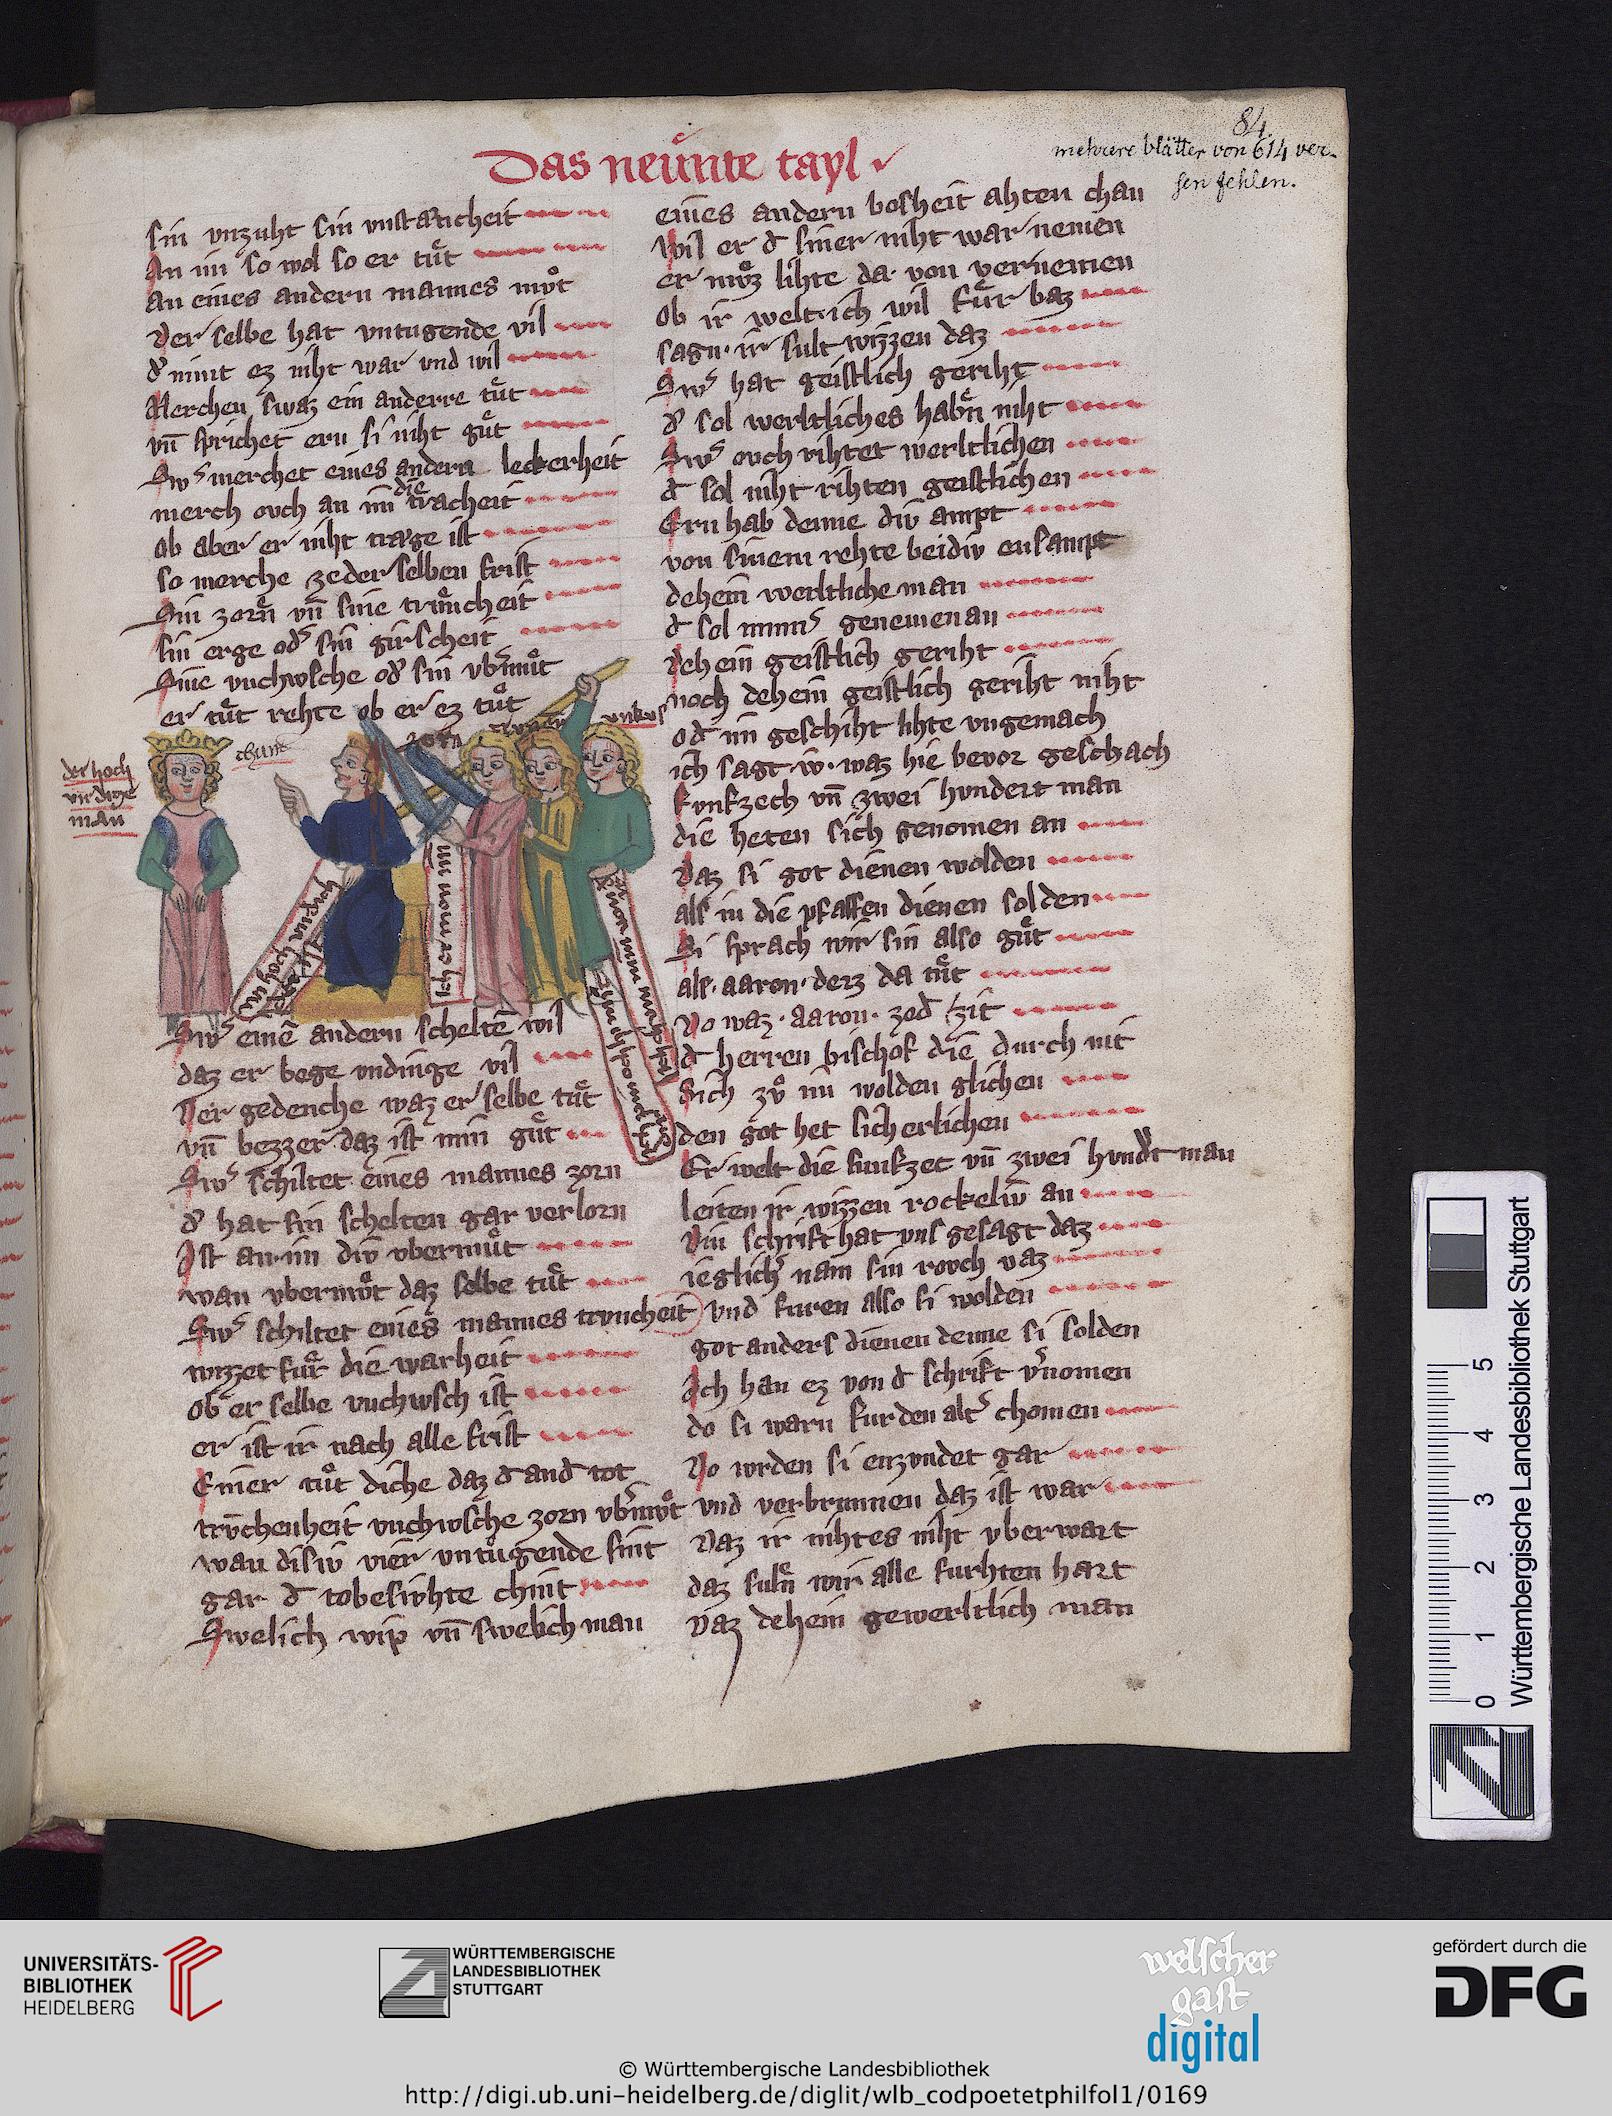 84.
mehrere blätter von 614 ver-
sen fehlen.
Das neuͤnte tayl
sin vnzuht sin vnstæticheit
An im so wol so er tuͤt
an eines andern mannes mvͦt
Der selbe hat vntugende vil
nimt ez niht war vnd wil
Merchen swaz ein anderre tuͤt
vn̄ sprichet ern si niht guͤt
Swˢ merchet eines andern leckerheit
merch ovch an im die tracheit
ob aber er niht træge ist
so merche ze der selben frist
Sin zorn vn̄ sine
sin erge odˢ sin girscheit
Sine vnchvsche od sin vb̄muͤt
er tuͤt rehte ob er ez tuͤt
der hoch
virdige
man
zorn
vnkus
Swˢ eine andern schelte wil
daz er bege vndinge vil
Der gedenche waz er selbe tuͤt
vn̄ bezzer daz ist min guͤt
Swˢ schiltet eines mannes zorn
hat sin schelten gar verlorn
Ist an im div vbermuͤt
wan vbermvͦt daz selbe tuͤt
Swˢ schiltet eines mannes trvncheit
wizzet fuͤr die warheit
ob er selbe vnchvsch ist
er ist ir nach alle frist
Einer tuͤt diche daz đ anđ tot
trv̄chenheit vnchvsche zorn vb̄mvͦt
wan disiv vier vntugende sint
gar đ tobesvhte chint
Swelich wip vn̄ swelich man
eines andern bosheit ahten chan
Wil er đ siner niht war nemen
er mvͦz lihte da von vernemen
ob ir welt ich wil fuͤr baz
sagn ir sult wizzen daz
Swˢ hat geistlich geriht
đ sol werltliches habn niht
Swˢ ovch rihtet werltlichen
đ sol niht rihten geistlichen
Ern hab denne div ampt
von sinem rehte beidiv ensampt
dehein werltliche man
đ sol nimmˢ genemen an
dehein geistlich geriht
noch dehein geistlich geriht niht
od im geschiht lihte vngemach
ich sagt iv waz hie bevor geschach
fvnfzech vn̄ zwei hvndert man
die heten sich genomen an
Daz si got dienen wolden
als in die pfaffen dienen solden
Si sprach wir sin also guͤt
als aaron derz da tuͤt
Do waz aaron zeđ zit
đ herren bischof die durch nit
Sich zvͦ im wolden glichen
den got het sicherlichen
Er welt die funfzec vn̄ zwei hvndt man
leiten ir wizzen rockeliv an
Div schrift hat vns gesagt daz
ieglichˢ nam sin rovch vaz
vnd furen also si wolden
got anders dienen denne si solden
Ich han ez von đ schrift vˢnomen
do si warn fur den altˢ chomen
Do wrden si enzvndet gar
vnd verbrunnen daz ist war
Daz ir nihtes niht vberwart
daz suln wir alle furhten hart
Daz dehein gewerltlich man
0 1 2 3 4 5
Württembergische Landesbibliothek Stuttgart
UNIVERSITÄTS-
BIBLIOTHEK
HEIDELBERG
WÜRTTEMBERGISCHE
LANDESBIBLIOTHEK
STUTTGART
welscher
gast
digital
gefördert durch die
DFG
© Württembergische Landesbibliothek
http://digi.ub.uni-heidelberg.de/diglit/wlb_codpoetetphilfol1/0169